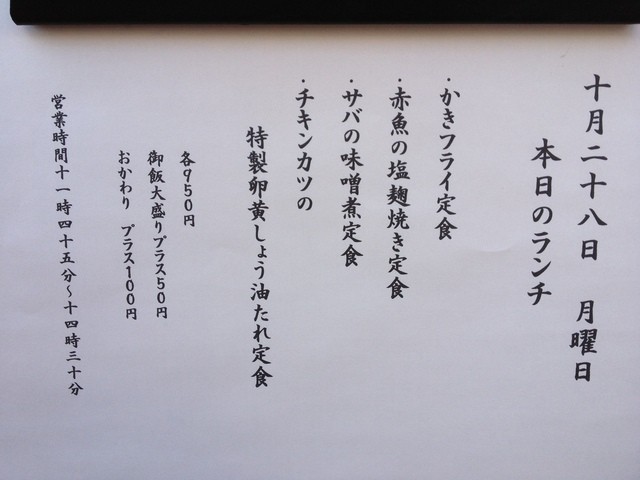 十月二十八日　月曜日
本日のランチ
・かきフライ定食
・赤魚の塩麹焼き定食
・サバの味噌煮定食
・チキンカツの
特製卵黄しょう油たれ定食
各９５０円
御飯大盛りプラス５０円
おかわり　プラス１００円
営業時間十一時四十五分～十四時三十分